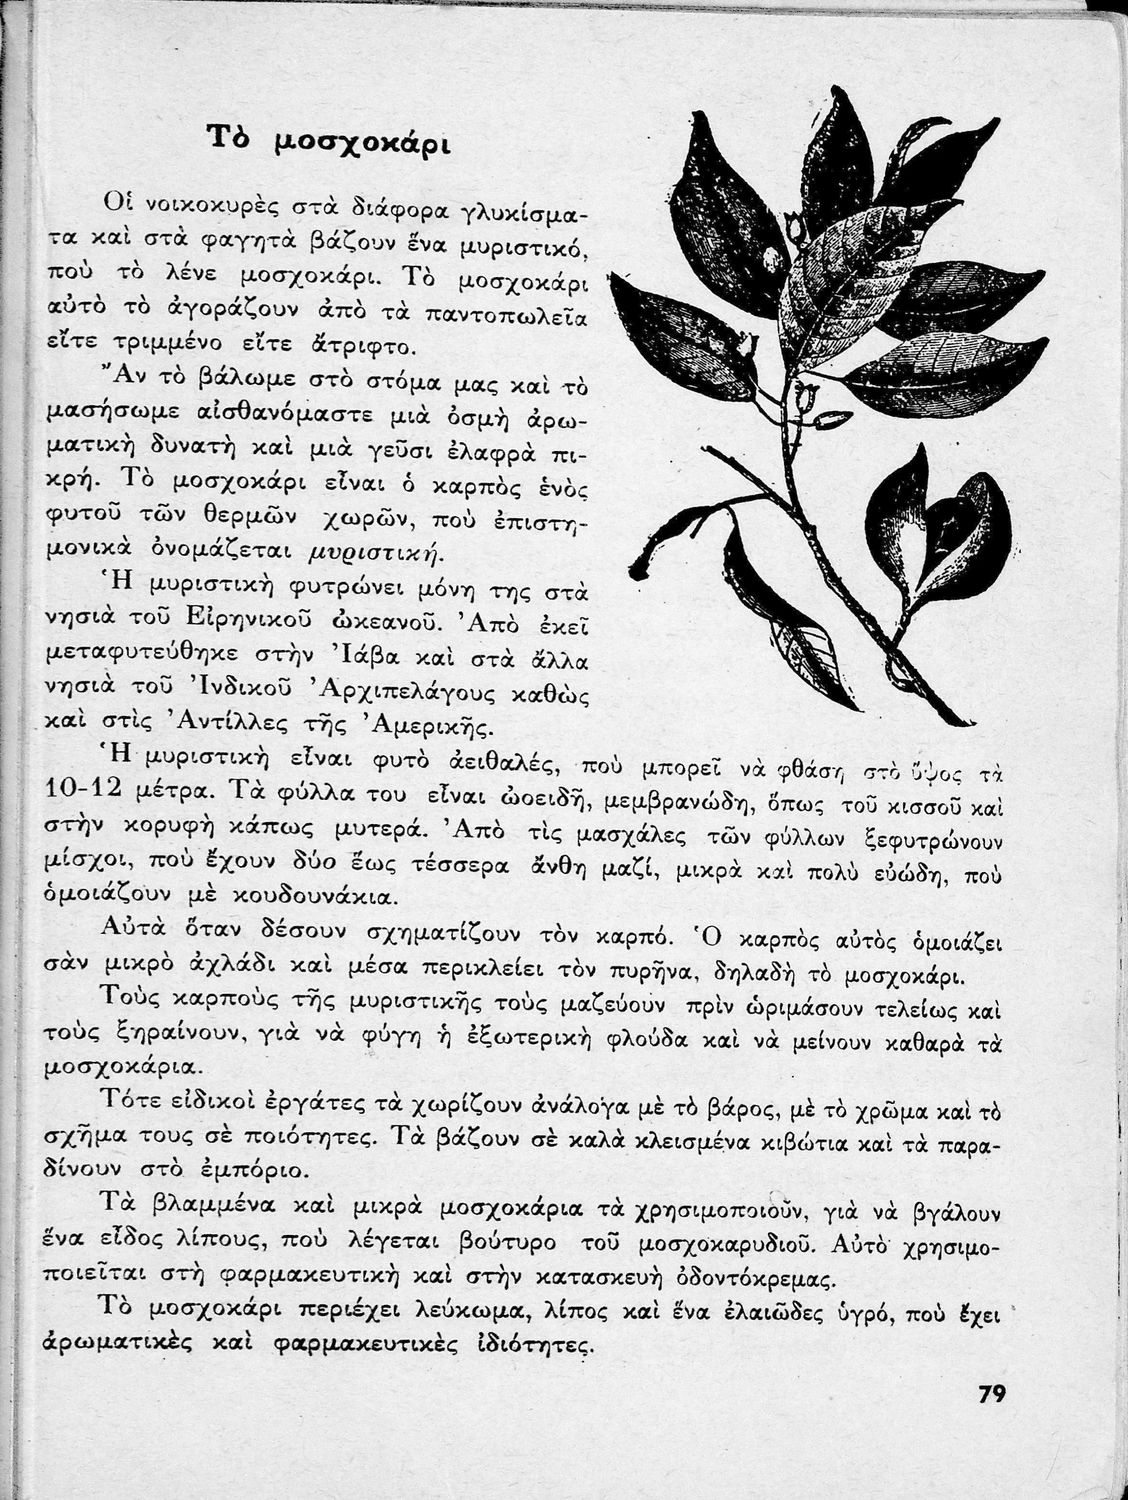 Τὸ μοσχοκάρι
Οἱ νοικοκυρὲς στὰ διάφορα γλυκίσμα-
τα καὶ στὰ φαγητὰ βάζουν ἕνα μυριστικό,
ποὺ τὸ λένε μοσχοκάρι. Τὸ μοσχοκάρι
αὐτὸ τὸ ἀγοράζουν ἀπὸ τὰ παντοπωλεῖα
εἴτε τριμμένο εἴτε ἄτριφτο.
Ἂν τὸ βάλωμε στὸ στόμα μας καὶ τὸ
μασήσωμε αἰσθανόμαστε μιὰ ὀσμὴ ἀρω-
ματικὴ δυνατὴ καὶ μιὰ γεῦσι ἐλαφρὰ πι-
κρή. Τὸ μοσχοκάρι εἶναι ὁ καρπὸς ἑνὸς
φυτοῦ τῶν θερμῶν χωρῶν, ποὺ ἐπιστη-
μονικὰ ὀνομάζεται μυριστική.
Ἡ μυριστικὴ φυτρώνει μόνη της στὰ
νησιὰ τοῦ Εἰρηνικοῦ ὠκεανοῦ. Ἀπὸ ἐκεῖ
μεταφυτεύθηκε στὴν Ἰάβα καὶ στὰ ἄλλα
νησιὰ τοῦ Ἰνδικοῦ Ἀρχιπελάγους καθὼς
καὶ στὶς Ἀντίλλες τῆς Ἀμερικῆς.
Ἡ μυριστικὴ εἶναι φυτὸ ἀειθαλές, ποὺ μπορεῖ νὰ φθάση στὸ ὕψος τὰ
10-12 μέτρα. Τὰ φύλλα του εἶναι ὠοειδῆ, μεμβρανώδη, ὅπως τοῦ κισσοῦ καὶ
στὴν κορυφὴ κάπως μυτερά. Ἀπὸ τὶς μασχάλες τῶν φύλλων ξεφυτρώνουν
μίσχοι, ποὺ ἔχουν δύο ἕως τέσσερα ἄνθη μαζί, μικρὰ καὶ πολὺ εὐώδη, ποὺ
ὁμοιάζουν μὲ κουδουνάκια.
Αὐτὰ ὅταν δέσουν σχηματίζουν τὸν καρπό. Ὁ καρπὸς αὐτὸς ὁμοιάζει
σὰν μικρὸ ἀχλάδι καὶ μέσα περικλείει τὸν πυρῆνα, δηλαδὴ τὸ μοσχοκάρι.
Τοὺς καρποὺς τῆς μυριστικῆς τοὺς μαζεύουν πρὶν ὡριμάσουν τελείως καὶ
τοὺς ξηραίνουν, γιὰ νὰ φύγη ἡ ἐξωτερικὴ φλούδα καὶ νὰ μείνουν καθαρὰ τὰ
μοσχοκάρια.
Τότε εἰδικοὶ ἐργάτες τὰ χωρίζουν ἀνάλογα μὲ τὸ βάρος, μὲ τὸ χρῶμα καὶ τὸ
σχῆμα τους σὲ ποιότητες. Τὰ βάζουν σὲ καλὰ κλεισμένα κιβώτια καὶ τὰ παρα-
δίνουν στὸ ἐμπόριο.
Τὰ βλαμμένα καὶ μικρὰ μοσχοκάρια τὰ χρησιμοποιοῦν, γιὰ νὰ βγάλουν
ἕνα εἶδος λίπους, ποὺ λέγεται βούτυρο τοῦ μοσχοκαρυδιοῦ. Αὐτὸ χρησιμο-
ποιεῖται στὴ φαρμακευτικὴ καὶ στὴν κατασκευὴ ὀδοντόκρεμας.
Τὸ μοσχοκάρι περιέχει λεύκωμα, λίπος καὶ ἕνα ἐλαιῶδες ὑγρό, ποὺ ἔχει
ἀρωματικὲς καὶ φαρμακευτικὲς ἰδιότητες.
79